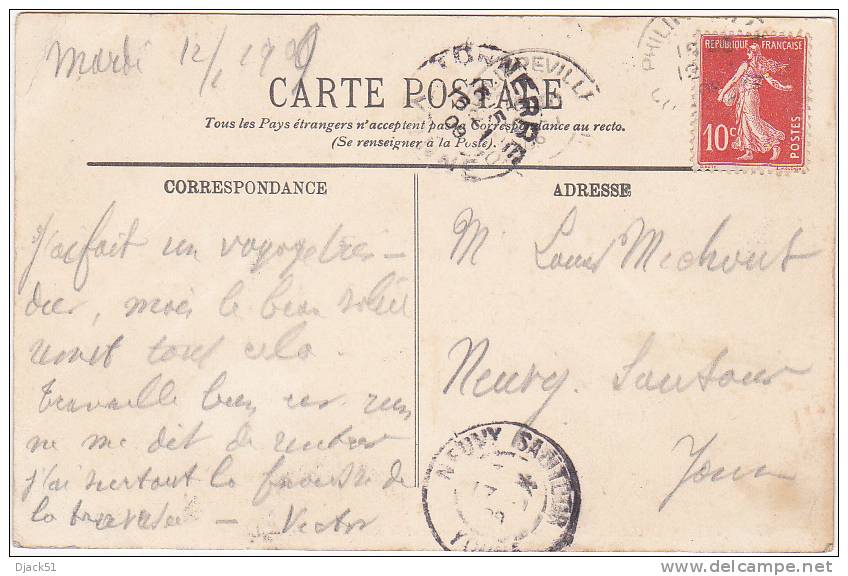 Mardi 12/1 1909
CARTE POSTALE
Tous les Pays étrangers n'acceptent pas la Correspondance au recto.
(Se renseigner à la Poste).
PHILIPPEVILLE
TONNERRE
REPUBLIQUE FRANÇAISE
10c
POSTES
CORRESPONDANCE
J'ai fait un voyage très
dur, mais le beau soleil
vaut tout cela.
Travaille bien car rien
ne me dit de rentrer
j'ai surtout la frousse de
la traversée — Victor
ADRESSE
M. Louis Michout
Neuvy Sautour
Yonne
NEUVY SAUTOUR
YONNE
Djack51
www.delcampe.net